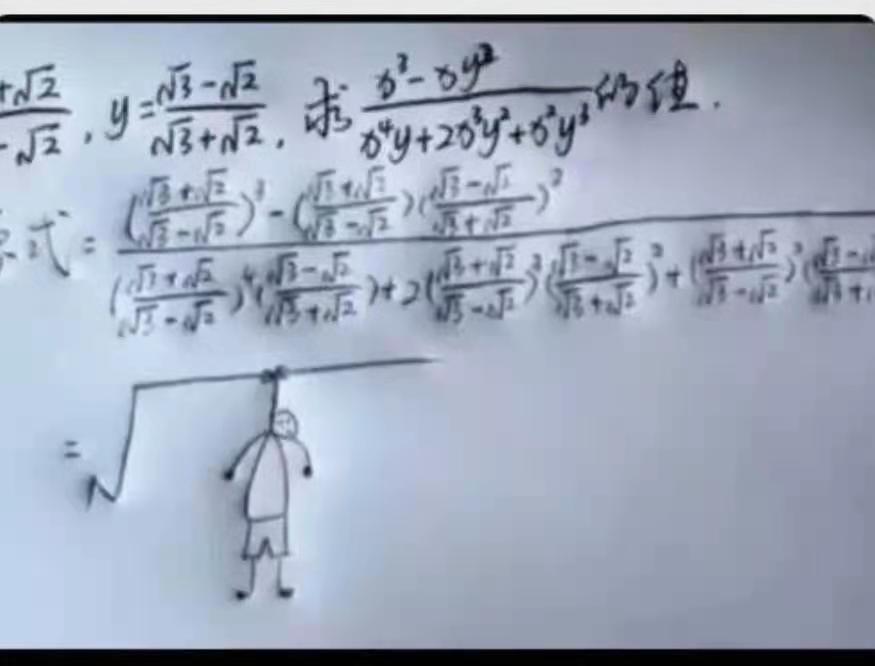 +√2/-√2, y=(√3-√2)/(√3+√2), 求 (x³-xy²)/(x⁴y+2x³y²+x²y³) 的值.
式= ((√3+√2)/(√3-√2))³-((√3+√2)/(√3-√2))((√3-√2)/(√3+√2))² / ((√3+√2)/(√3-√2))⁴((√3-√2)/(√3+√2))+2((√3+√2)/(√3-√2))³((√3-√2)/(√3+√2))²+((√3+√2)/(√3-√2))²(
=√